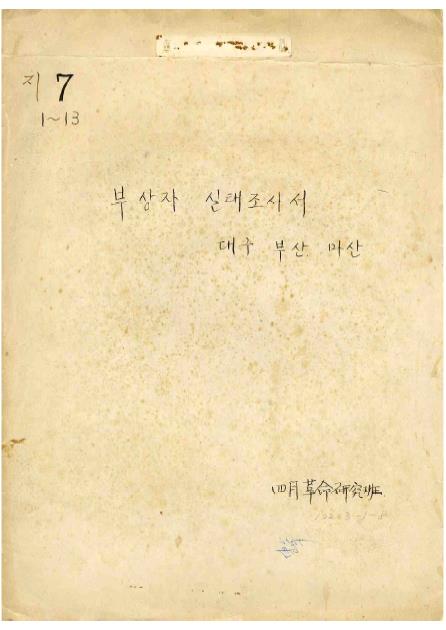 지 7
1~13
부상자 실태조사서
대구 부산 마산
四月革命研究班